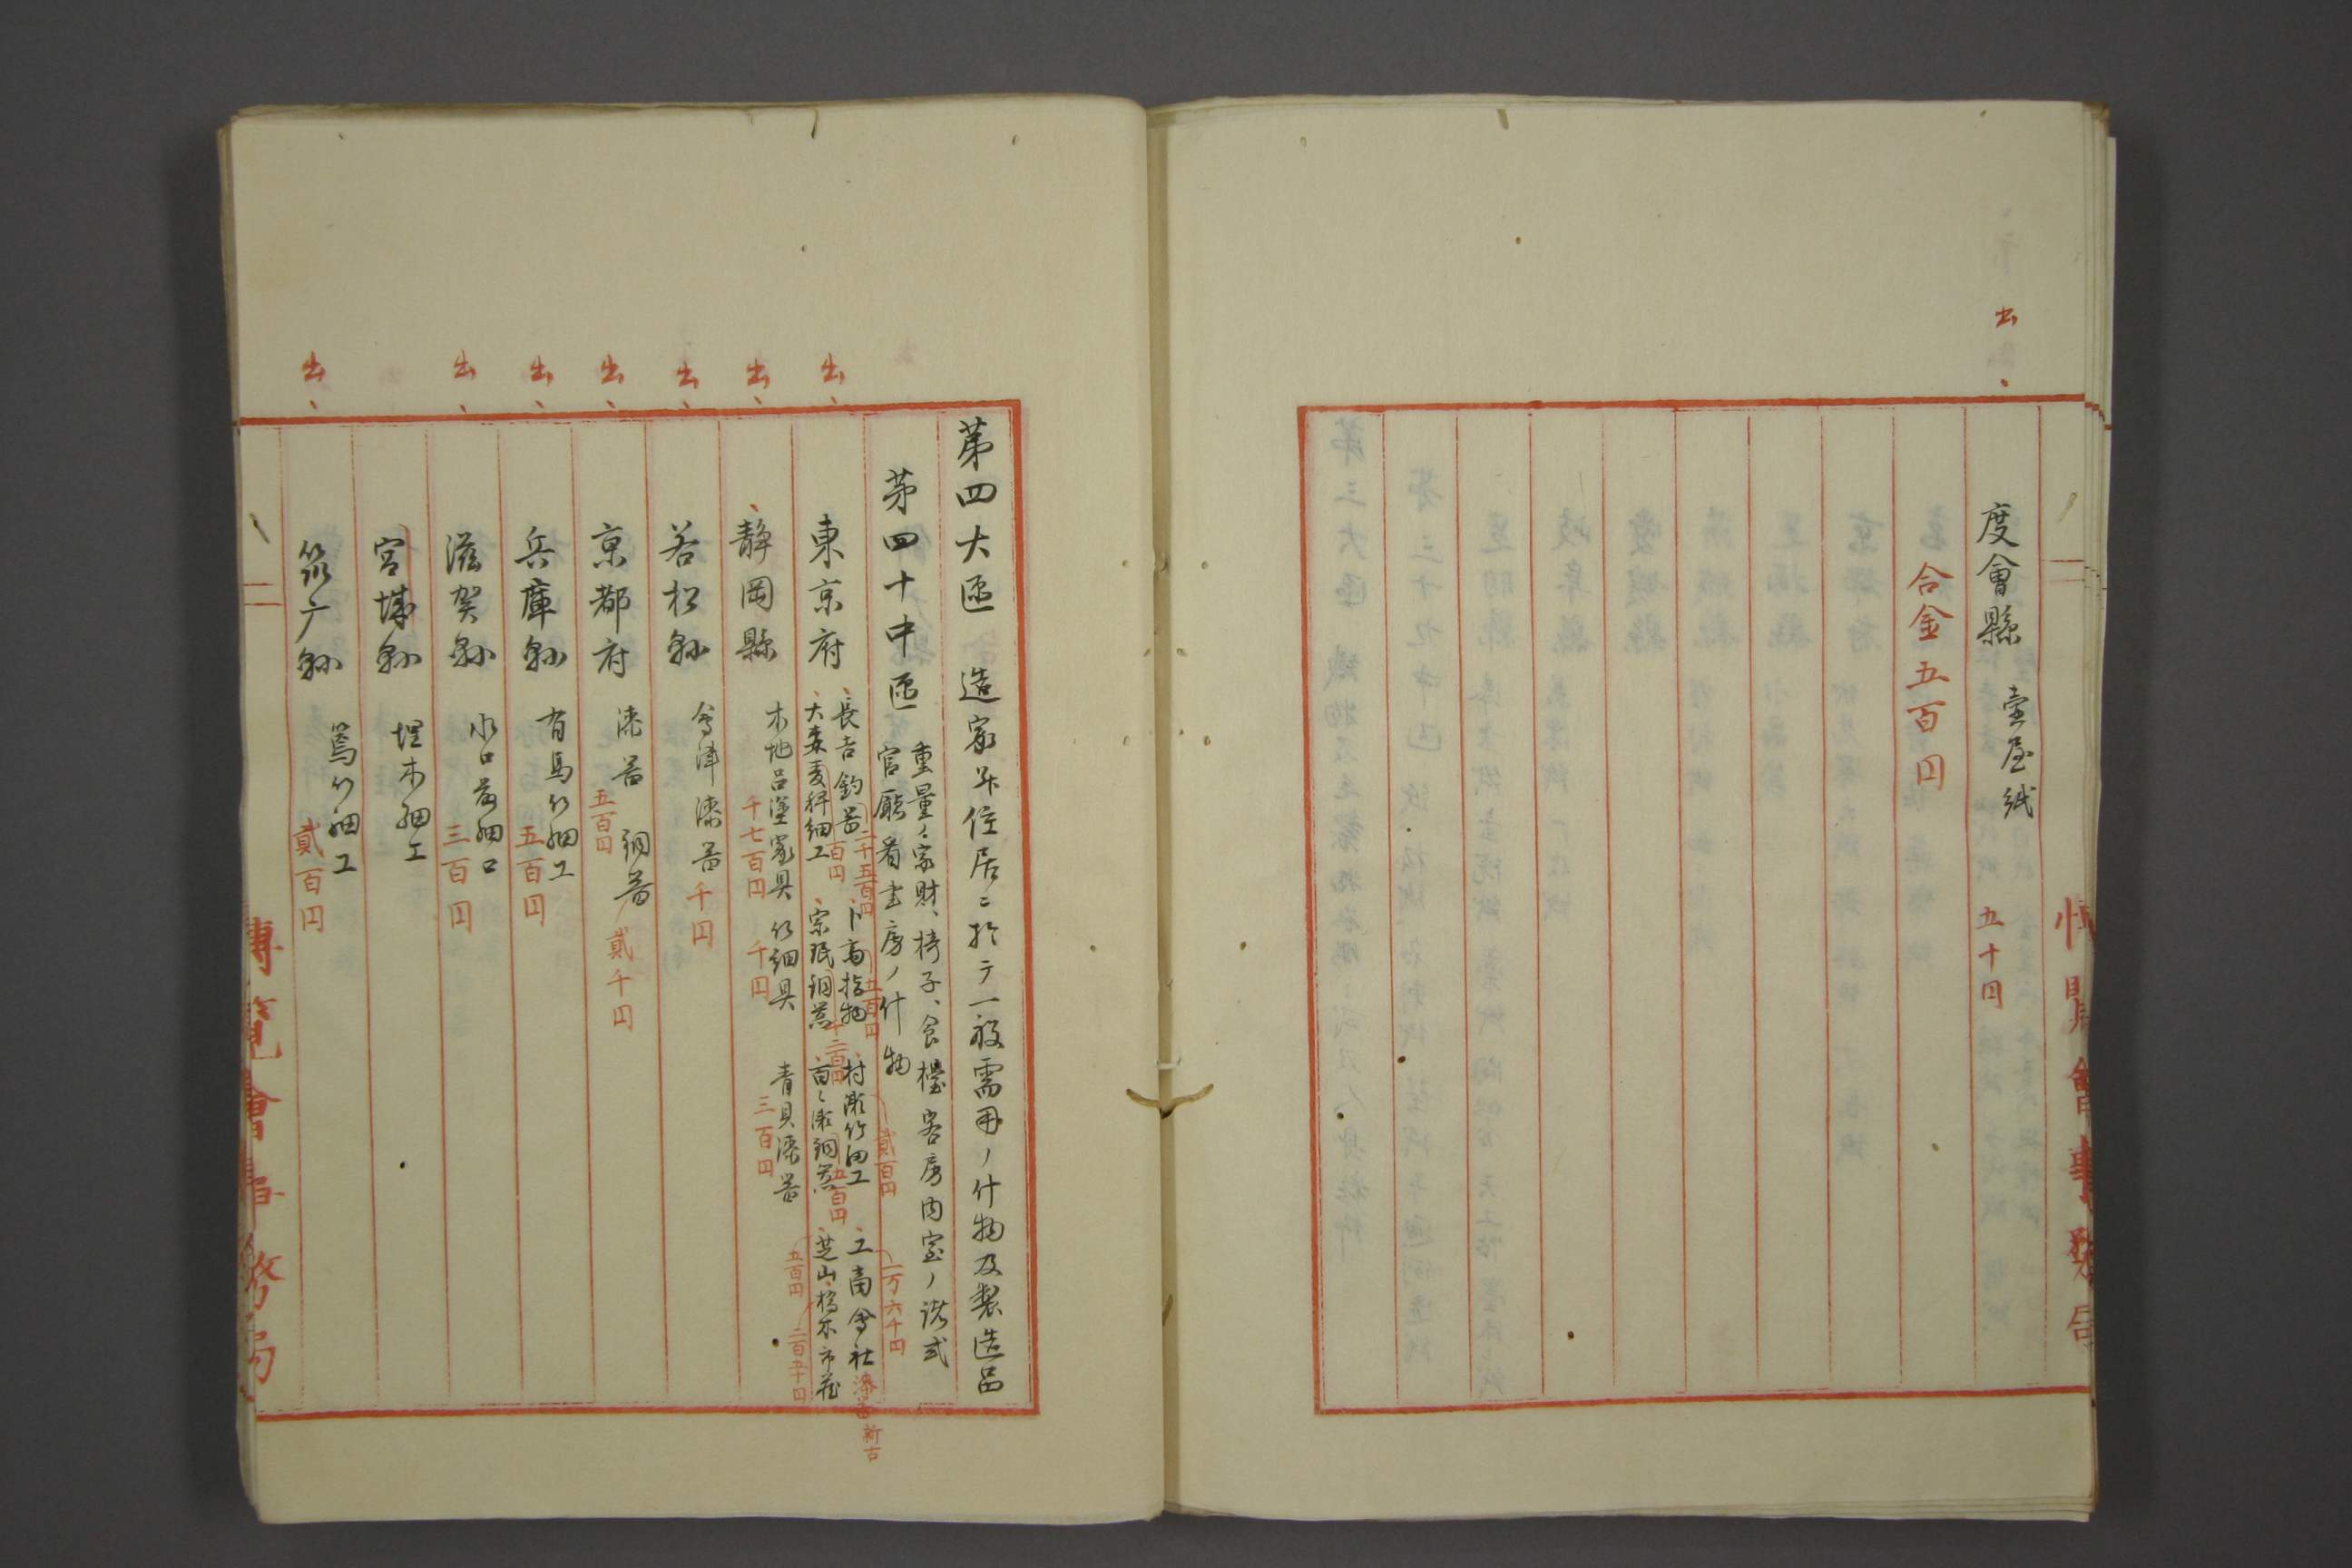 出
度會縣　壺屋紙　五十円
合金五百円
博覧會事務局
第四大區　造家并住居ニ於テ一般需用ノ什物及製造品
第四十中區　重量ノ家財、椅子、食檯客房内室ノ諸式
官廳看書房ノ什物
出
東京府　長吉釣器　二千五百円　卜斎指物　五百円　村瀬竹細工　貳百円　工商會社漆器新古　一万六千円
大森麦稈細工　百円　宗珉銅器　百瀬銅器　五百円　芝山　五百円　橋本市蔵　二百五十円
出
静岡縣　木地呂塗家具　千七百円　竹細具　千円　青貝漆器　三百円
出
若松縣　會津漆器　千円
出
京都府　漆器　五百円　銅器　貳千円
出
兵庫縣　有馬竹細工　五百円
出
滋賀縣　水口葛細口　三百円
宮城縣　埋木細工
出
筑广縣　篶竹細工　貳百円
博覧會事務局